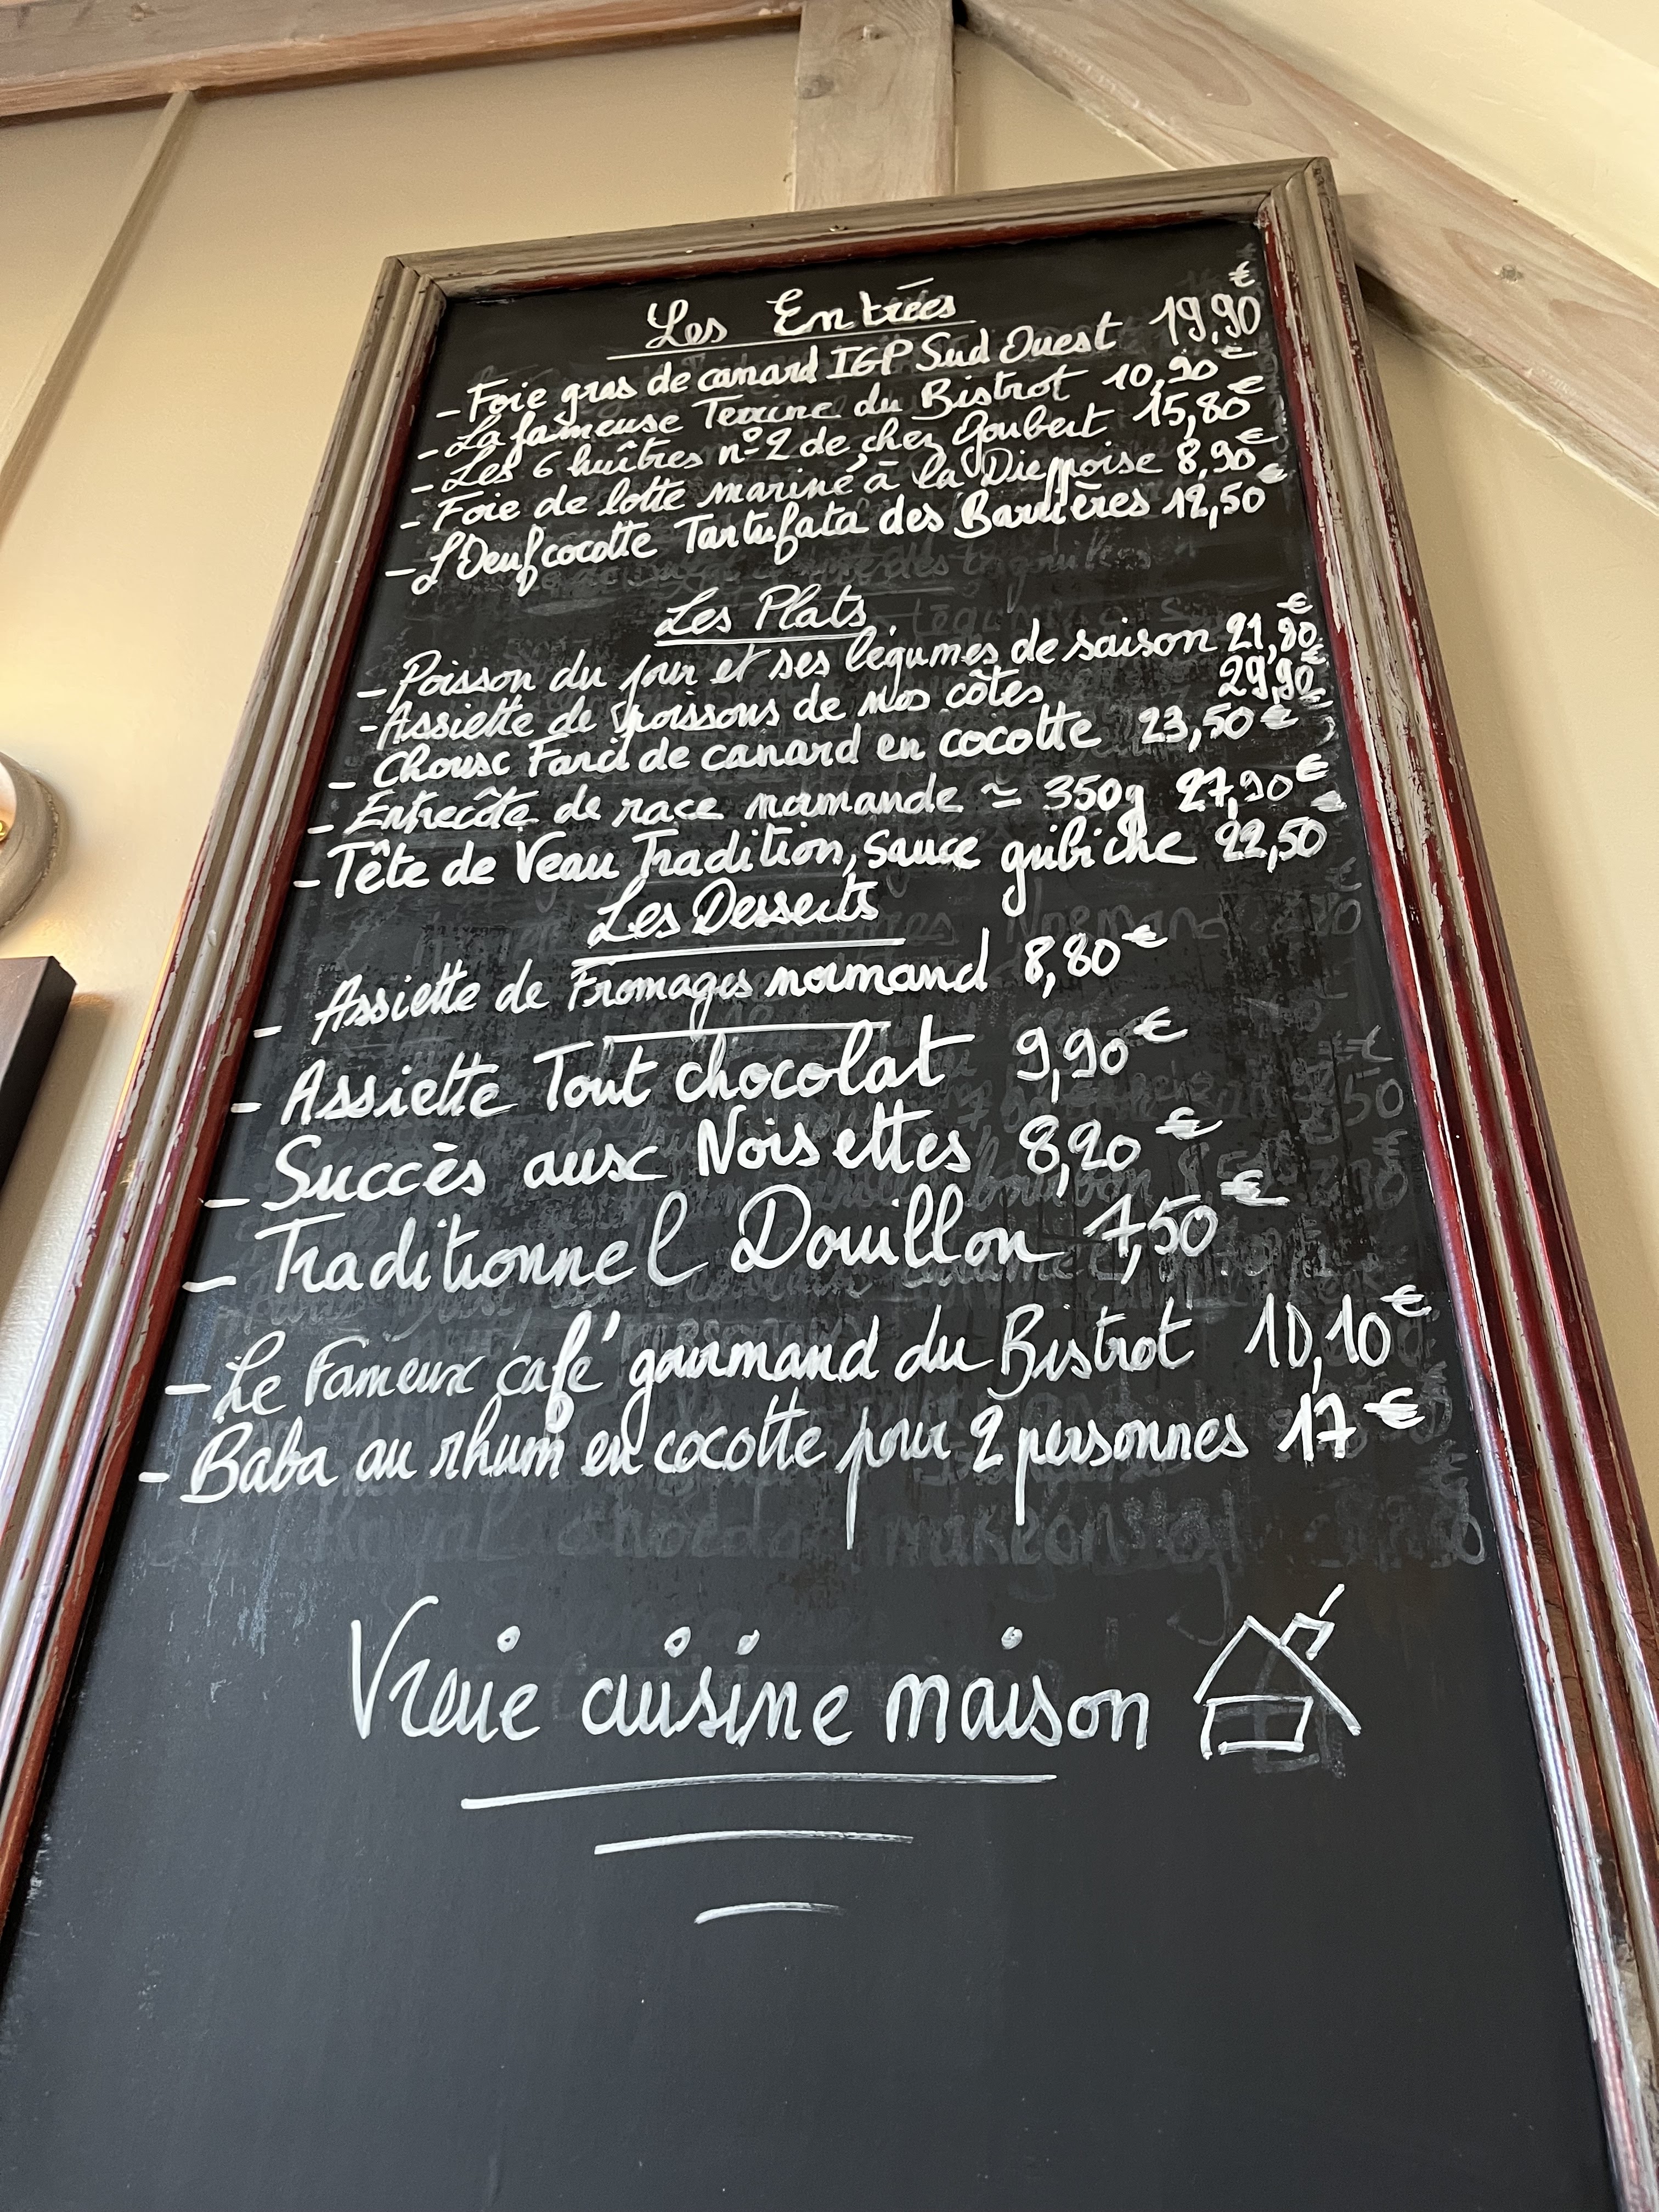 Les Entrées
- Foie gras de canard IGP Sud Ouest 19,90 €
- La fameuse Terrine du Bistrot 10,90 €
- Les 6 huîtres n°2 de chez Goubert 15,80 €
- Foie de lotte mariné à la Dieppoise 8,90 €
- L'Oeuf cocotte Tartufata des Barrières 12,50 €
Les Plats
- Poisson du jour et ses légumes de saison 21,90 €
- Assiette de poissons de nos côtes 29,90 €
- Choux Farci de canard en cocotte 23,50 €
- Entrecôte de race normande ≃ 350g 27,90 €
- Tête de Veau Tradition, Sauce gribiche 22,50 €
Les Desserts
- Assiette de Fromages normand 8,80 €
- Assiette Tout chocolat 9,90 €
- Succès aux Noisettes 8,20 €
- Traditionnel Douillon 7,50 €
- Le Fameux café gourmand du Bistrot 10,10 €
- Baba au rhum en cocotte pour 2 personnes 17 €
Vraie cuisine maison